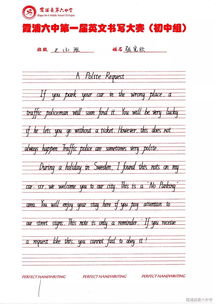 霞浦县第六中学
霞浦六中第一届英文书写大赛（初中组）
班级
姓名
A Polite Request
If you park your car in the wrong place, a
traffic policeman will soon find it. You will be very lucky
if he lets you go without a ticket. However, this does not
always happen. Traffic police are sometimes very polite.
During a holiday in Sweden, I found this note on my
car: sir, we welcome you to our city. This is a "No Parking"
area. You will enjoy your stay here if you pay attention to
our street signs. This note is only a reminder. If you receive
a request like this, you cannot fail to obey it!
PERFECT HANDWRITING PERFECT HANDWRITING PERFECT HANDWRITING
霞浦县第六中学